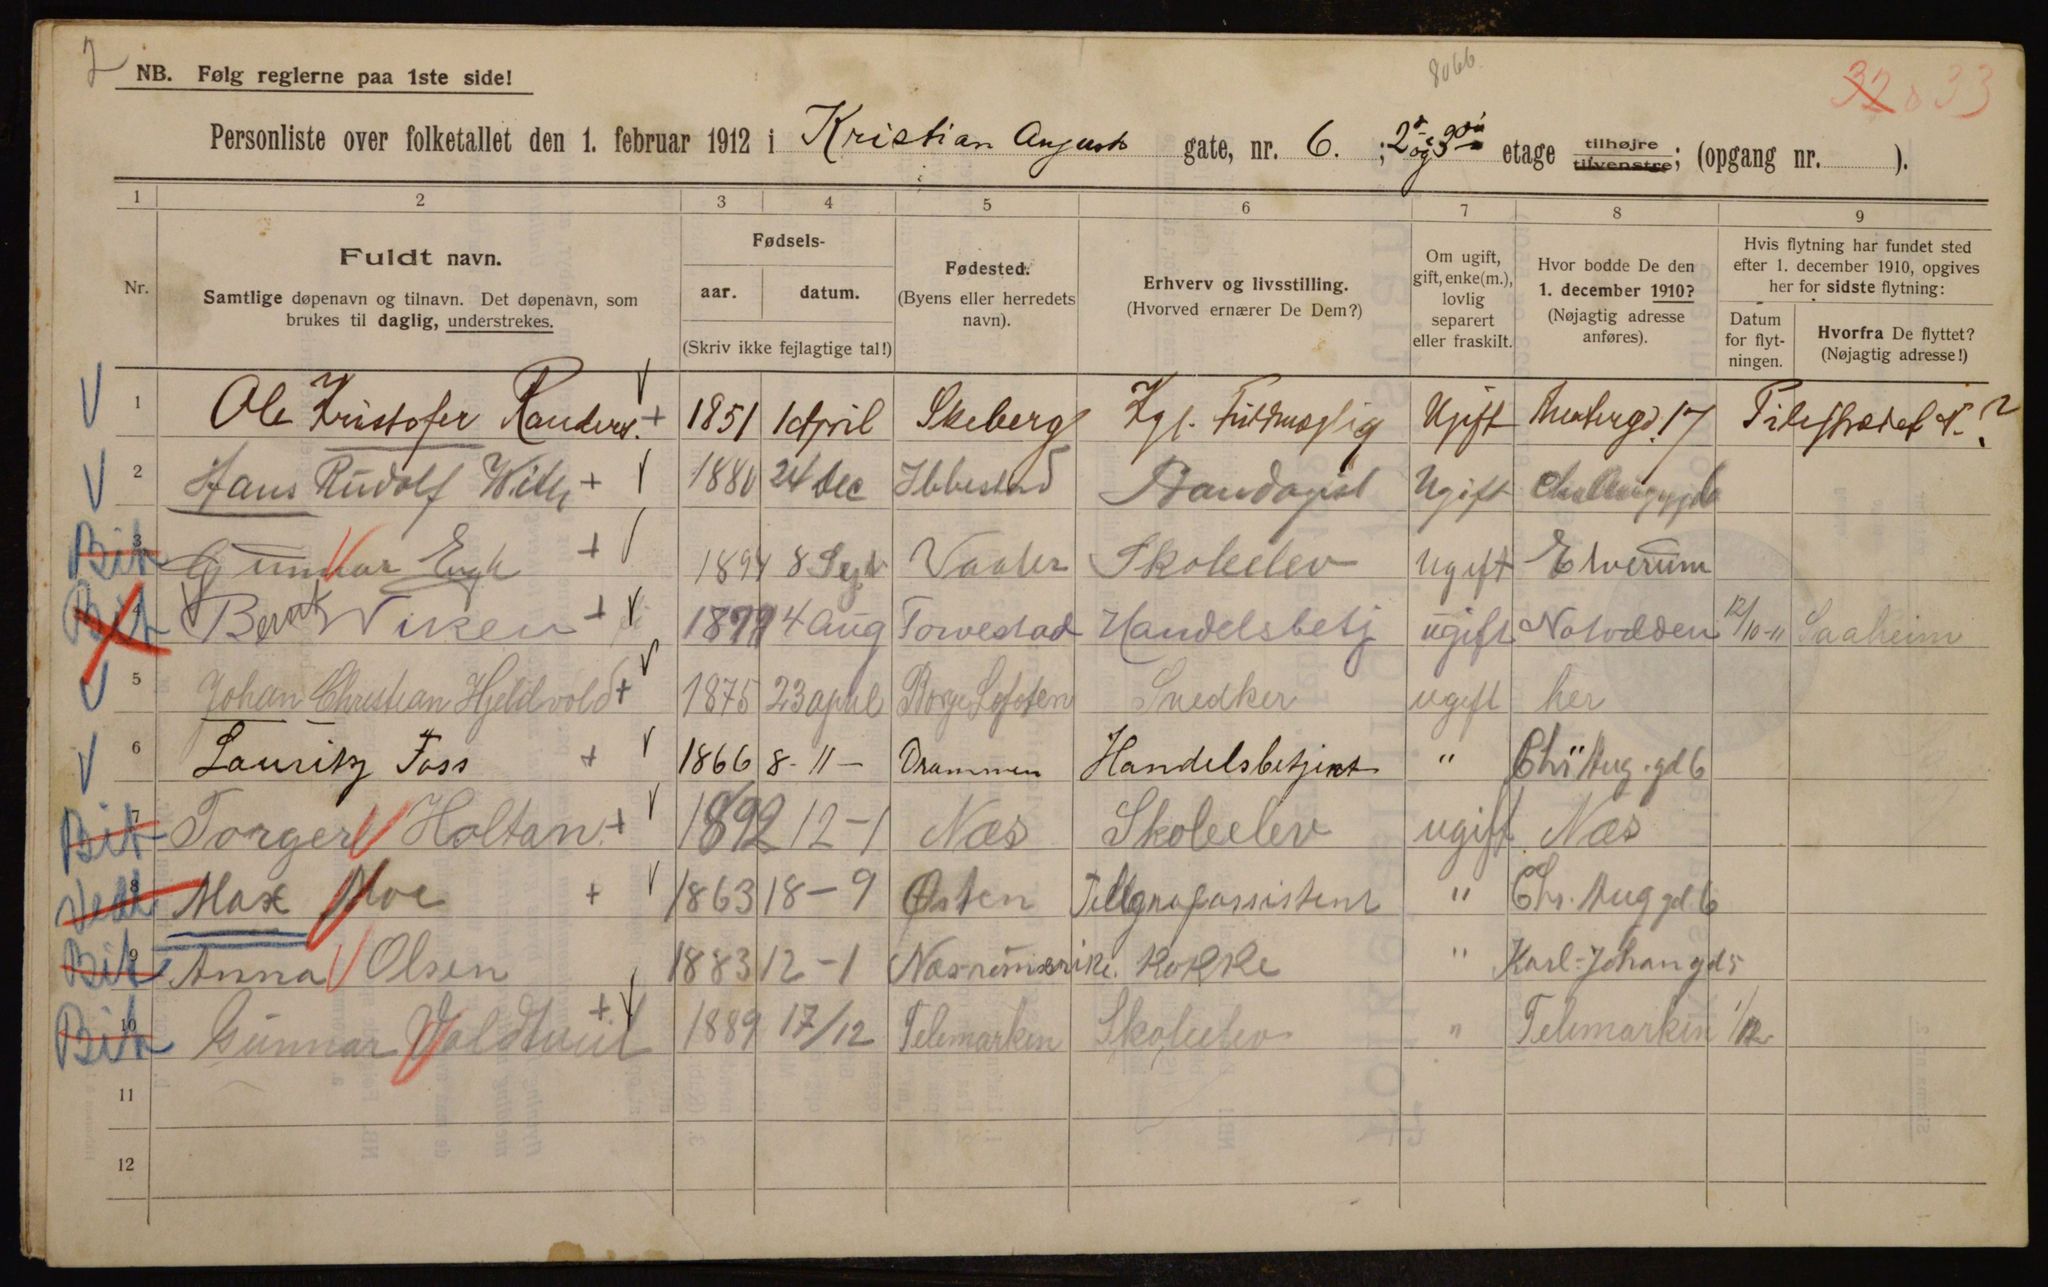 8066.
32 33
NB. Følg reglerne paa 1ste side!
Personliste over folketallet den 1. februar 1912 i Kristian Augusts gate, nr. 6. ; 2 og 3 etage tilhøjre tilvenstre; (opgang nr. ).
1 2 3 4 5 6 7 8 9
Nr.
Fuldt navn.
Samtlige døpenavn og tilnavn. Det døpenavn, som
brukes til daglig, understrekes.
Fødsels-
aar. datum.
(Skriv ikke fejlagtige tal!)
Fødested.
(Byens eller herredets
navn).
Erhverv og livsstilling.
(Hvorved ernærer De Dem?)
Om ugift,
gift, enke(m.),
lovlig
separert
eller fraskilt.
Hvor bodde De den
1. december 1910?
(Nøjagtig adresse
anføres).
Hvis flytning har fundet sted
efter 1. december 1910, opgives
her for sidste flytning:
Datum
for flyt-
ningen.
Hvorfra De flyttet?
(Nøjagtig adresse!)
1 Ole Kristofer Randers + 1851 1 April Skeberg Kgl. Fuldmægtig Ugift 17 Pilestrædet N. ?
2 Hans Rudolf With + 1880 24 dec Ibbestad Bandagist Ugift
Bit 3 Gunnar Engh + 1894 8 Sept Vaaler Skoleelev ugift Elverum
Bit 4 Bernt Viken + 4 Aug Torvestad Handelsbetj ugift Notodden 12/10-11 Saaheim
5 Johan Christian Hjeldvold + 1875 23 april Borge Lofoten Snedker ugift her
6 Lauritz Foss + 1866 8-11- Drammen Handelsbetjent " Chr. Aug. gd 6
Bit 7 Torger Holtan + 1892 12-1 Næs Skoleelev ugift Næs
8 Max Moe + 1863 18-9 Østen Telegrafassistent " Chr. Aug gd 6
Bit 9 Anna Olsen 1883 12-1 Næs romerike. Kokke " Karl-Johan gd 5
Bit 10 Gunnar + 1889 17/12 Telemarken Skoleelev " Telemarken
11
12